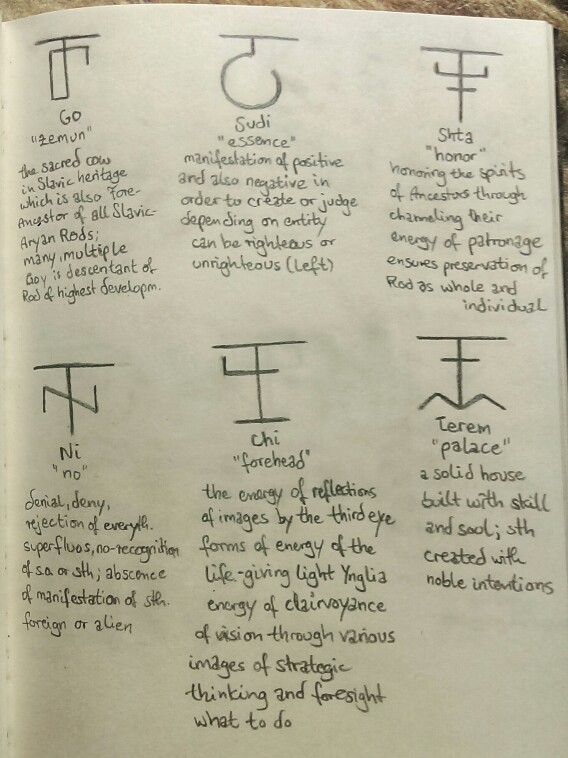 Go
"zemun"
the sacred cow
in Slavic heritage
which is also Fore-
Ancestor of all Slavic-
Aryan Rods;
many, multiple
Goy is descentant of
Rod of highest developm.
Sudi
"essence"
manifestation of positive
and also negative in
order to create or judge
depending on entity
can be righteous or
unrighteous (left)
Shta
"honor"
honoring the spirits
of Ancestors through
channeling their
energy of patronage
ensures preservation of
Rod as whole and
individual
Ni
"no"
denial, deny,
rejection of everyth.
superfluos, no-recognition
of sa or sth; abscence
of manifestation of sth.
foreign or alien
Chi
"forehead"
the energy of reflections
of images by the third eye
forms of energy of the
life-giving light Ynglia
energy of clairvoyance
of vision through various
images of strategic
thinking and foresight
what to do
Terem
"palace"
a solid house
built with skill
and sool; sth
created with
noble intentions